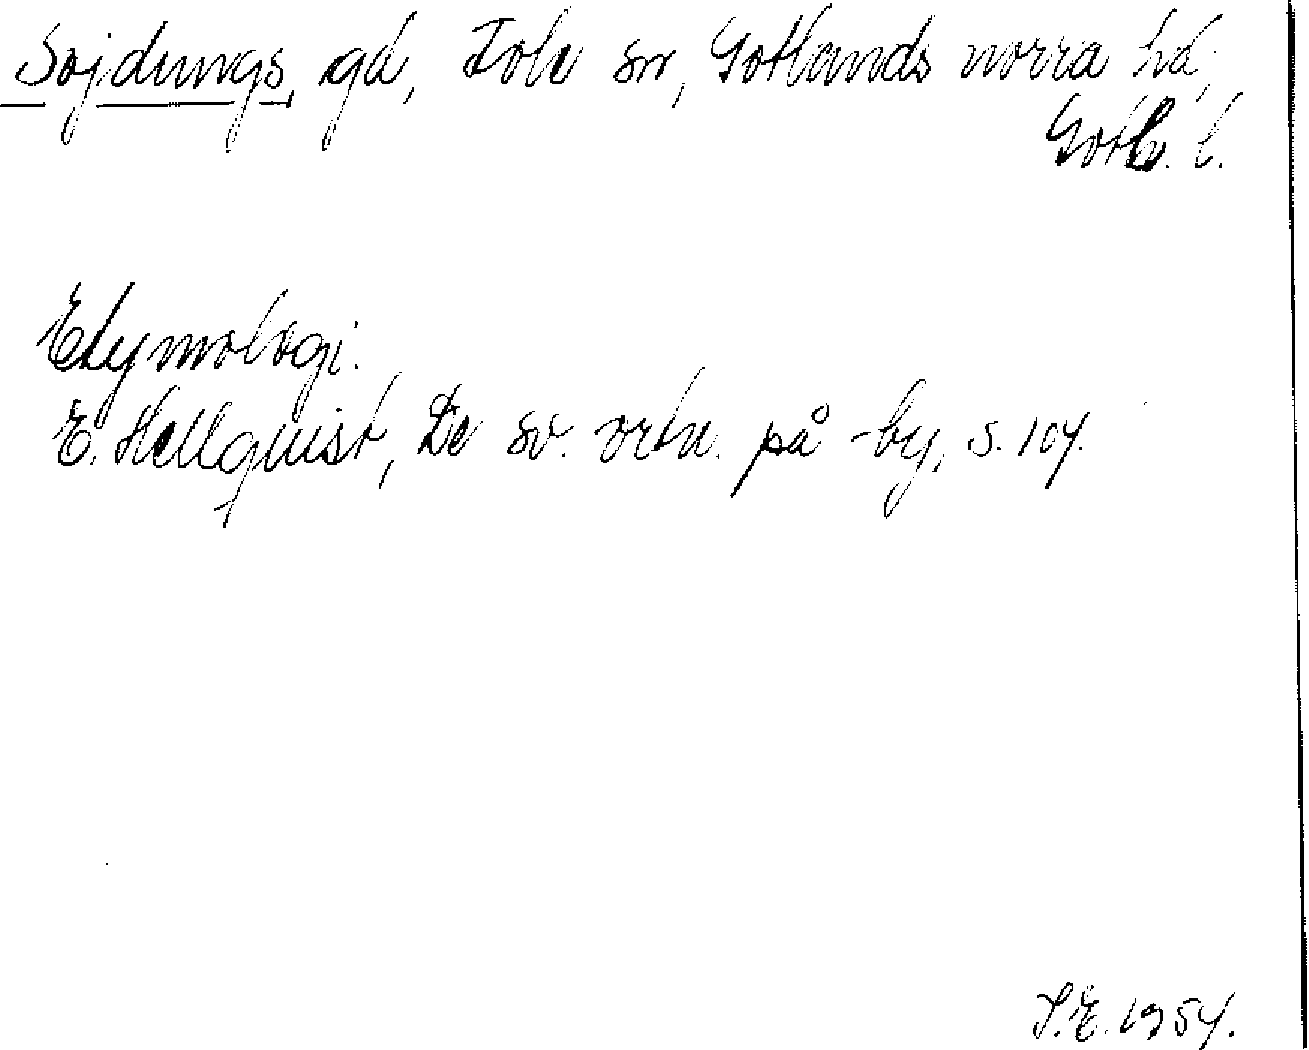 Sojdungs, gd, Fole sn, Gotlands norra hd,
Gotl. l.
Etymologi.
E. Hellquist, De sv. ortn. på -by, s. 104.
S.E. 1954.